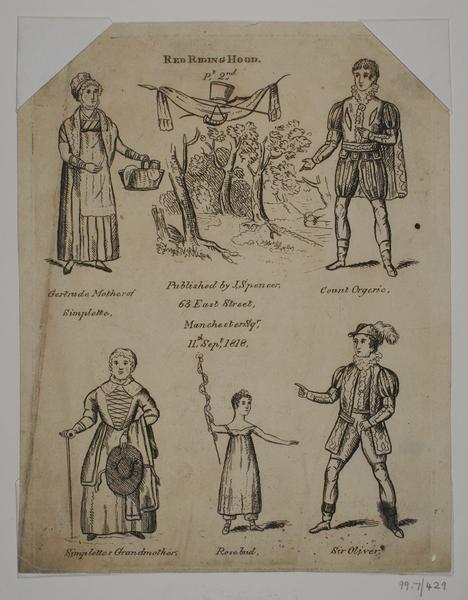 RED RIDING HOOD.
Pt. 2nd
Gertrude Mother of
Simplette,
Published by J. Spencer,
63 East Street,
Manchester Sqr,
11th Sept, 1818,
Count Orgeric,
Simplettes Grandmother,
Rosebud,
Sir Oliver,
99.7/429